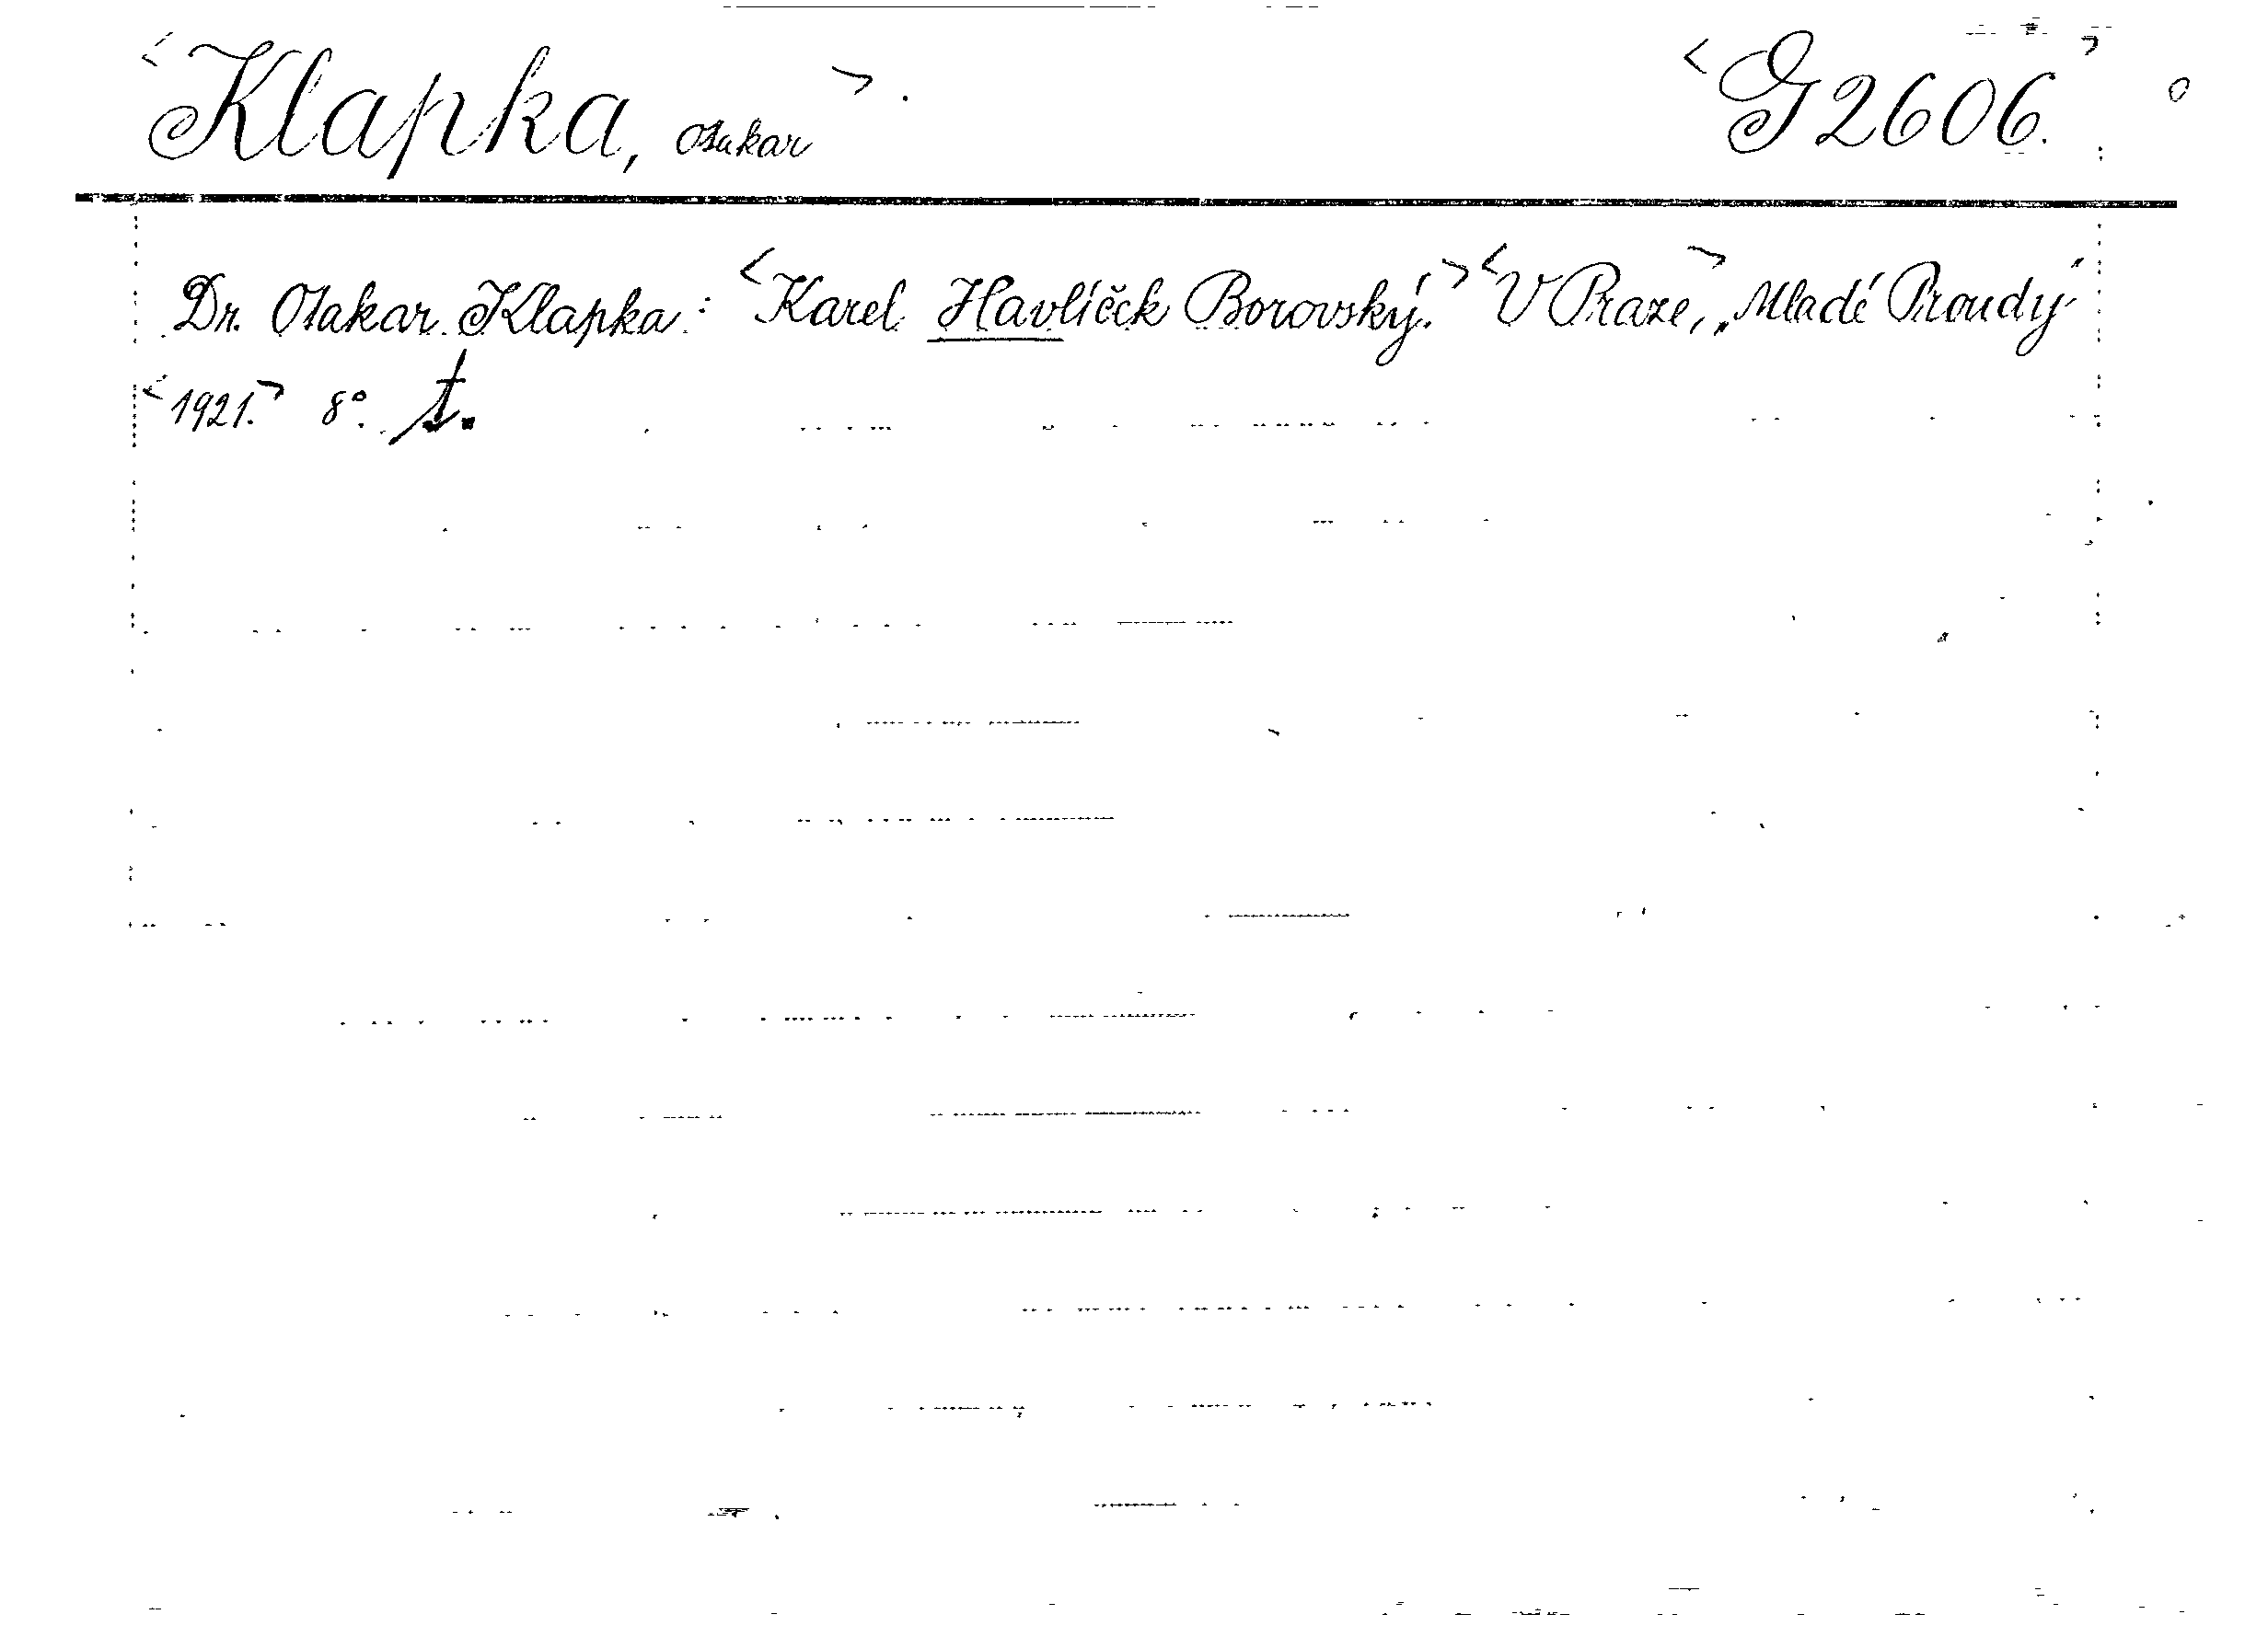 <Klapka, Otakar>. <G 2606.>
Dr. Otakar Klapka: <Karel Havlíček Borovský.> <V Praze,> „Mladé Proudy"
<1921.> 8°. t.